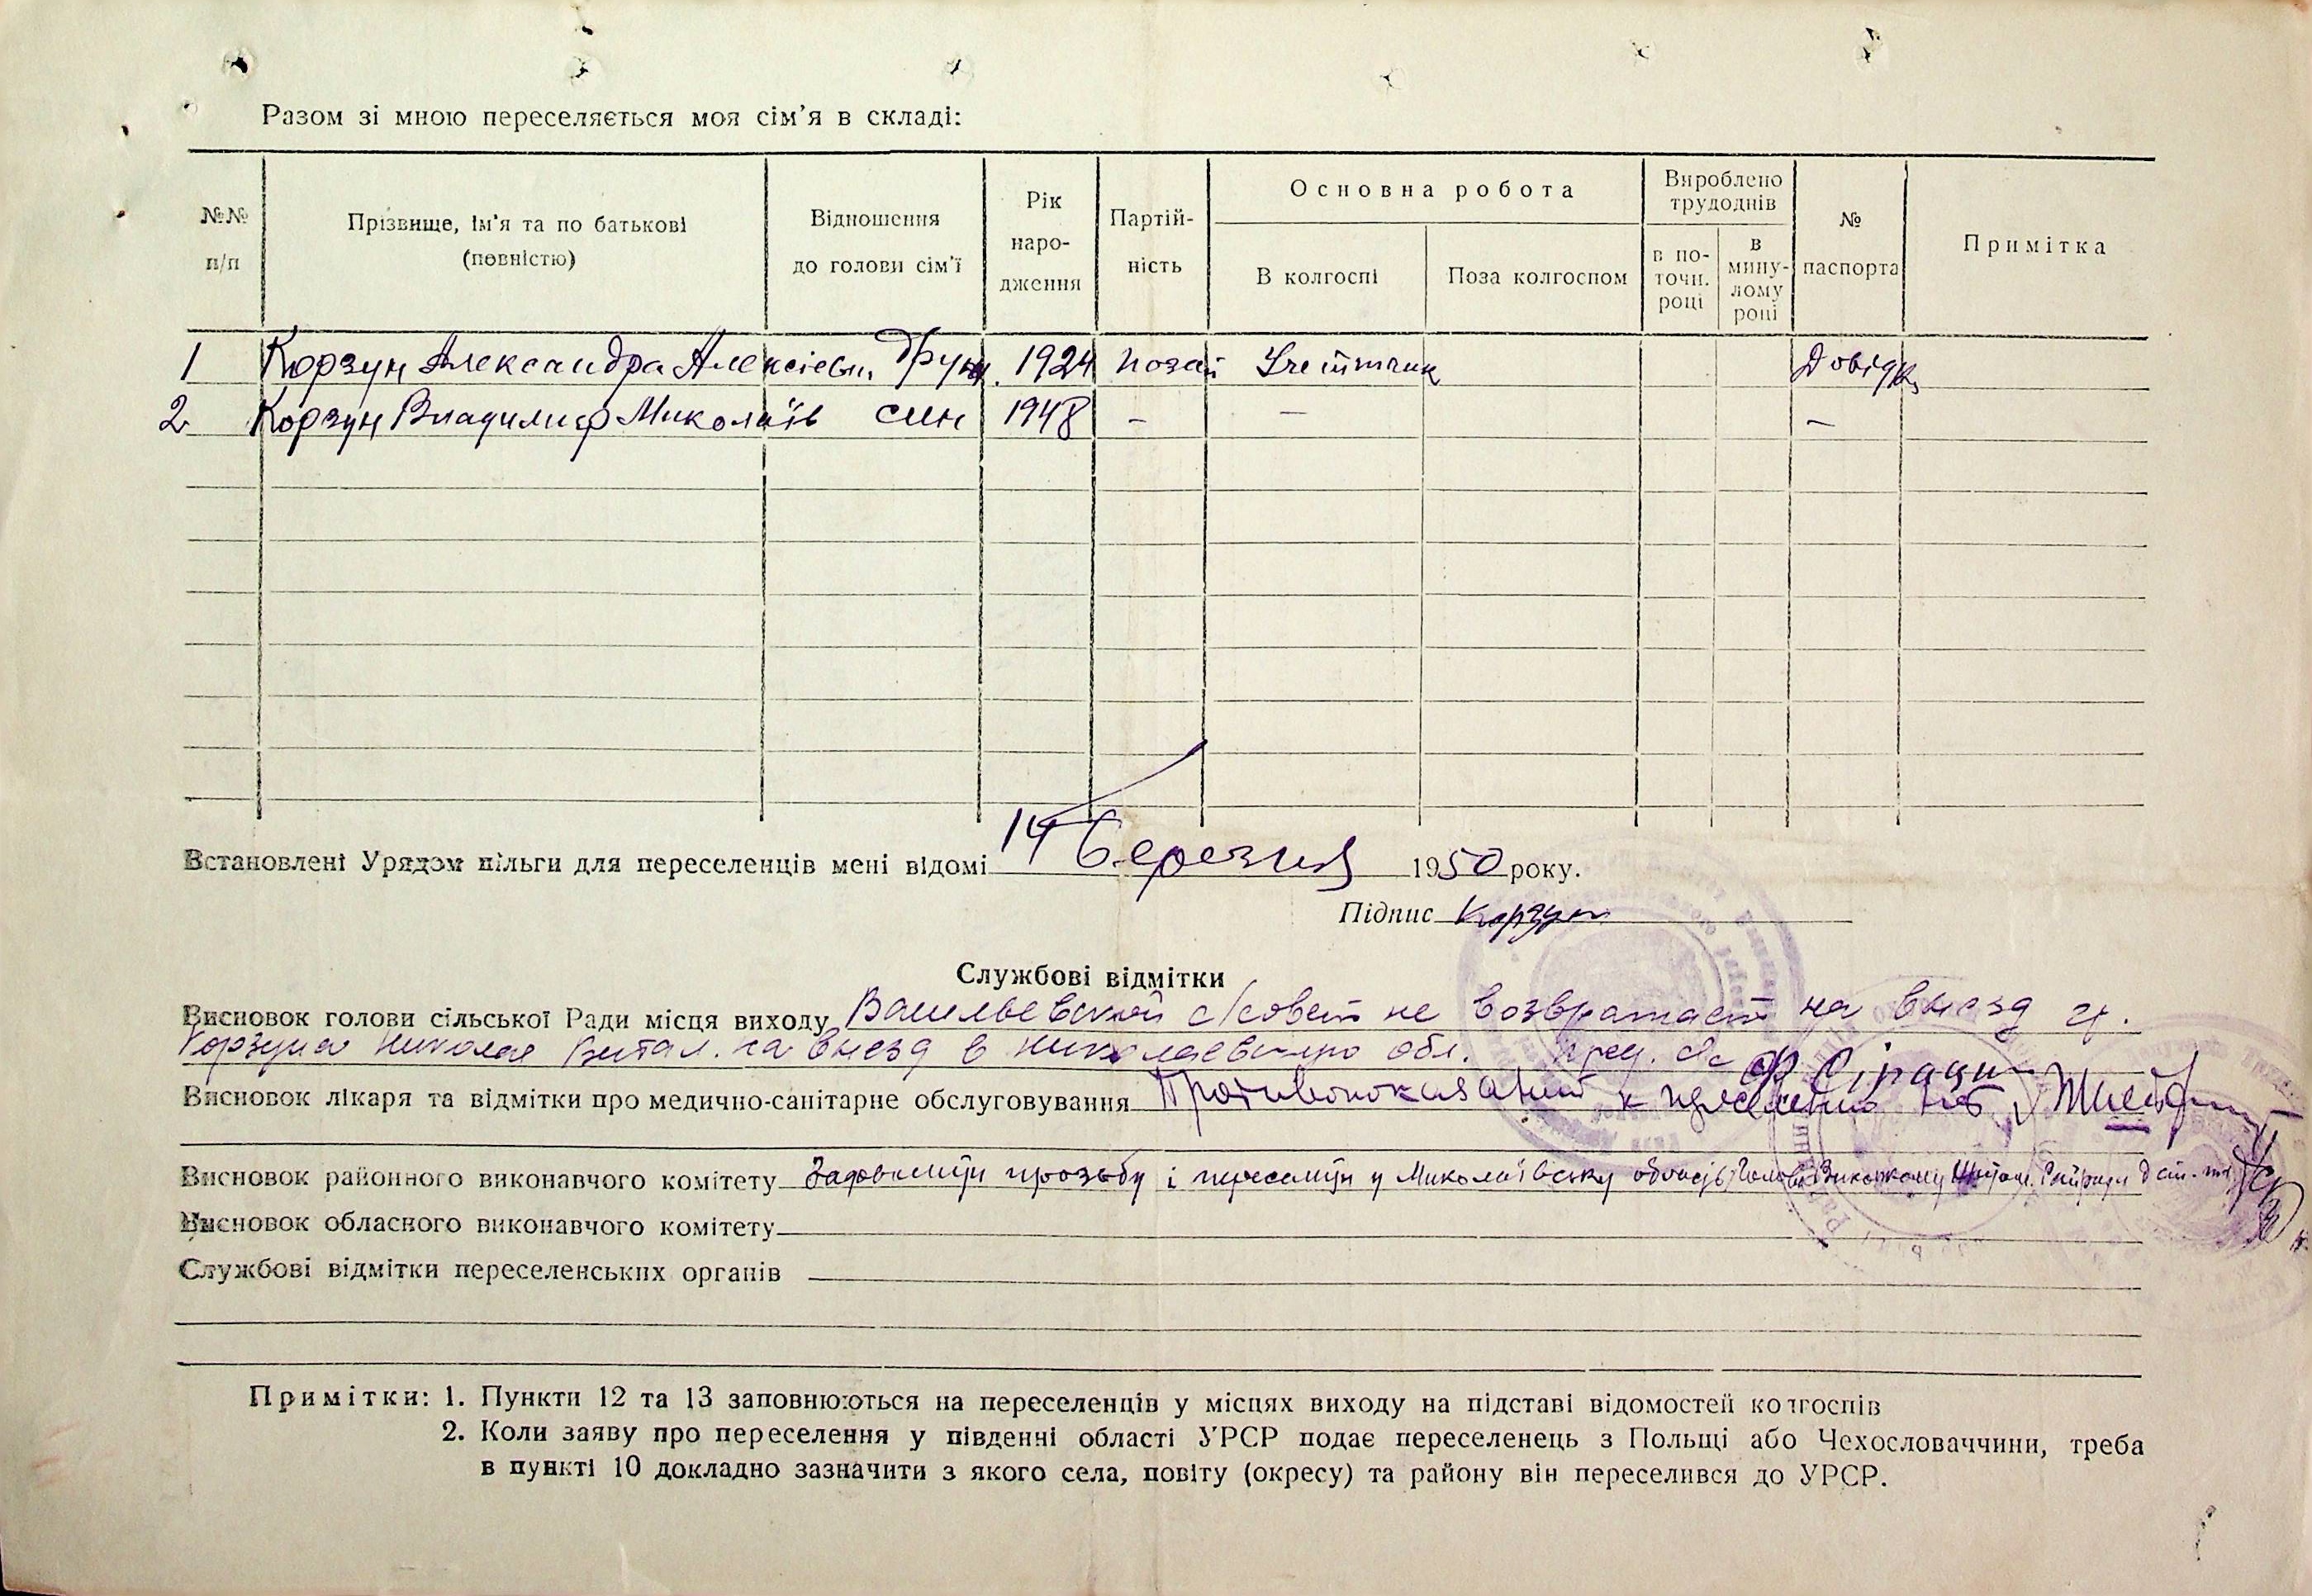 Разом зі мною переселяється моя сім'я в складі:
№№ п/п
Прізвище, ім'я та по батькові (повністю)
Відношення до голови сім'ї
Рік народження
Партійність
Основна робота
В колгоспі
Поза колгоспом
Вироблено трудоднів
в поточн. році
в минулому році
№ паспорта
Примітка
1 Корзун Александра Алексіевн. Друж. 1924 позап Учетчик Довідка
2 Корзун Владимир Миколаїв син 1948 - - -
Встановлені Урядом пільги для переселенців мені відомі 14 березня 1950 року.
Підпис Корзун
Службові відмітки
Висновок голови сільської Ради місця виходу Васильевский с/совет не возвратает на выезд гр.
Корзуна Николая Витал. на выезд в Николаевскую обл. Пред. с/с
Висновок лікаря та відмітки про медично-санітарне обслуговування Противопоказаний к переселению нет
Висновок районного виконавчого комітету Задовольнити прозьбу і переселити у Миколаївську область Голова Виконкому
Висновок обласного виконавчого комітету
Службові відмітки переселенських органів
Примітки: 1. Пункти 12 та 13 заповнюються на переселенців у місцях виходу на підставі відомостей колгоспів
2. Коли заяву про переселення у південні області УРСР подає переселенець з Польщі або Чехословаччини, треба
в пункті 10 докладно зазначити з якого села, повіту (окресу) та району він переселився до УРСР.